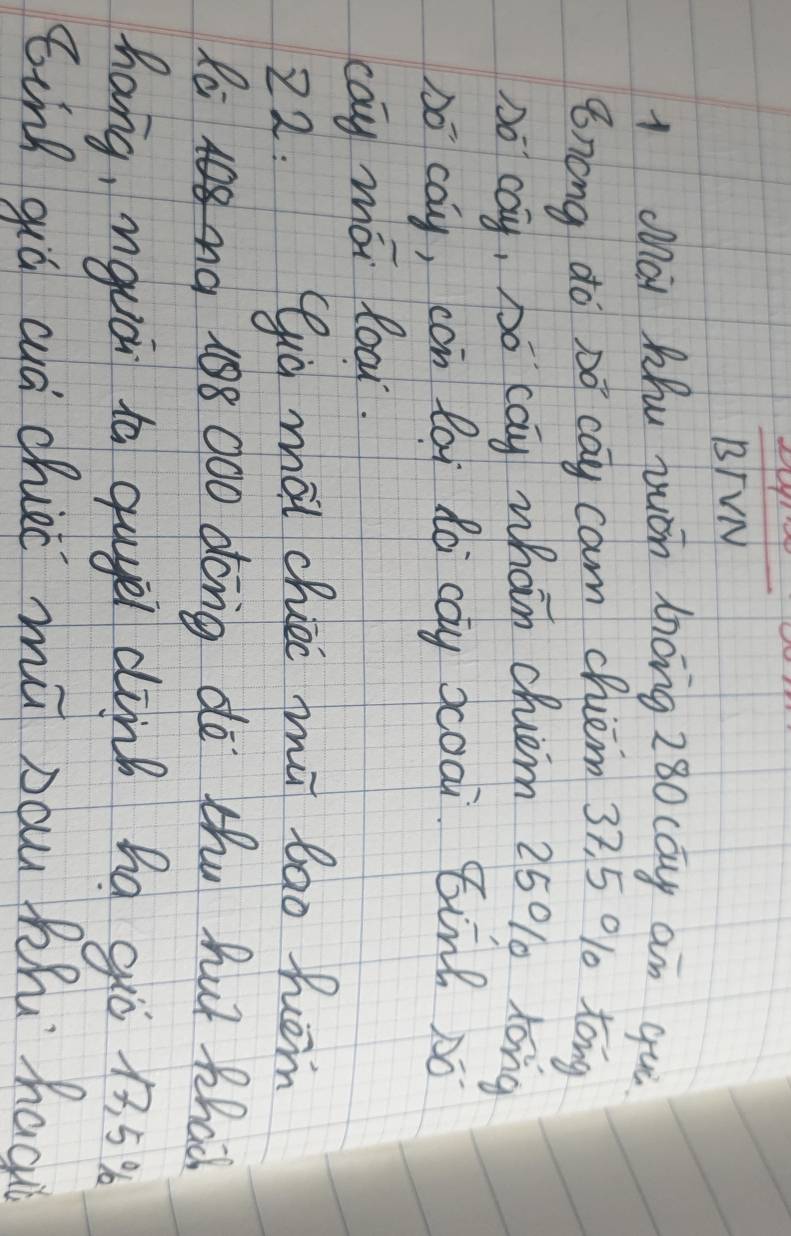 BTVN
1 Một khu vườn trồng 280 cây ăn quả.
Trong đó số cây cam chiếm 37,5% tổng
số cây, số cây nhãn chiếm 25% tổng
số cây, còn lại là cây xoài. Tính số
cây mỗi loại.
2 2: Giá một chiếc mũ bảo hiểm
là 188 000 đồng để thu hút khách
hàng, người ta quyết định hạ giá 17,5%
Tính giá của chiếc mũ sau khi hạ giá